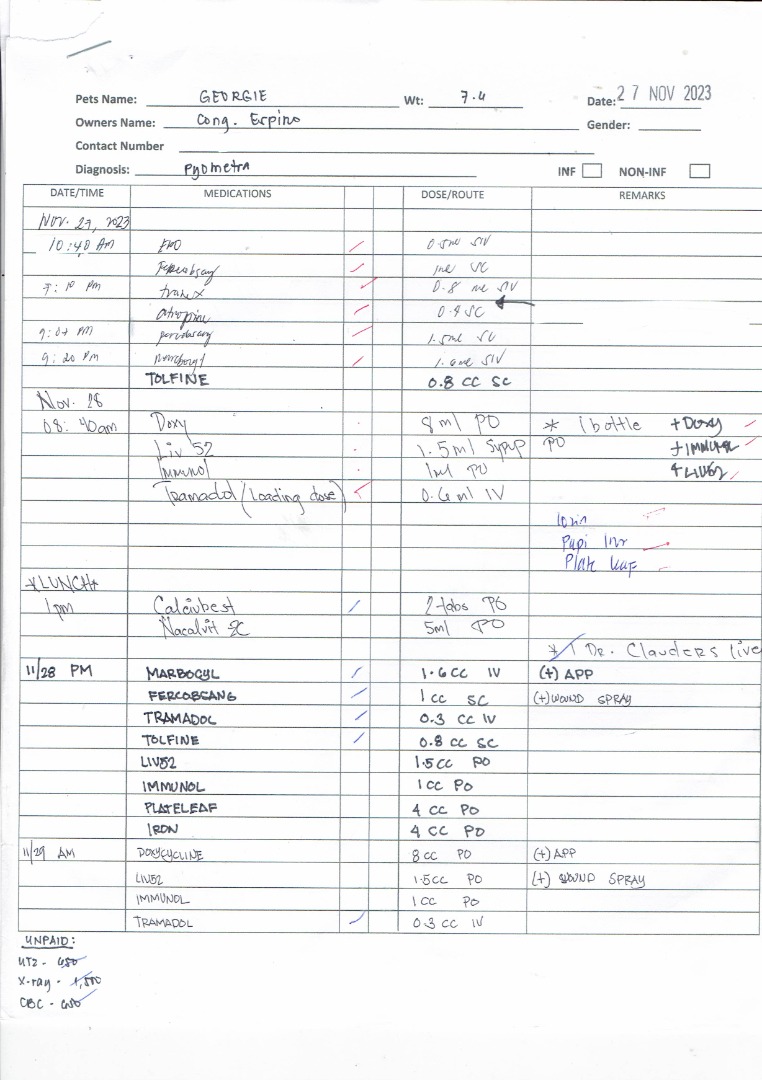 Pets Name: GEORGIE Wt: 7.4 Date: 27 NOV 2023
Owners Name: Cong. Erpino Gender:
Contact Number
Diagnosis: Pyometra INF NON-INF
DATE/TIME MEDICATIONS DOSE/ROUTE REMARKS
Nov. 27, 2023
10:40 AM 0.5ml SIV
Fercobsang 1ml SC
7:10 PM tranx 0.8 ml SIV
atropine 0.4 SC
9:07 PM fercobsang 1.5ml SC
9:20 PM marbocyl 1.6ml SIV
TOLFINE 0.8 CC SC
Nov. 28
08:40am Doxy 8ml PO * 1 bottle + DOXY
Liv 52 1.5ml Syrup PO + IMMUNOL
Immunol 1ml PO + LIV52
Tramadol (Loading dose) 0.6ml IV
Papi
Plate leaf
*LUNCH*
1pm Calciubest 2 tabs PO
Nacalvit 2C 5ml PO
* Dr. Clauders live
11/28 PM MARBOCYL 1.6 CC IV (+) APP
FERCOBSANG 1 CC SC (+) WOUND SPRAY
TRAMADOL 0.3 CC IV
TOLFINE 0.8 CC SC
LIV52 1.5 CC PO
IMMUNOL 1 CC PO
PLATELEAF 4 CC PO
IRON 4 CC PO
11/29 AM DOXYCYCLINE 8 CC PO (+) APP
LIV52 1.5CC PO (+) WOUND SPRAY
IMMUNOL 1 CC PO
TRAMADOL 0.3 CC IV
UNPAID:
UTZ -
X-ray - 1,500
CBC -